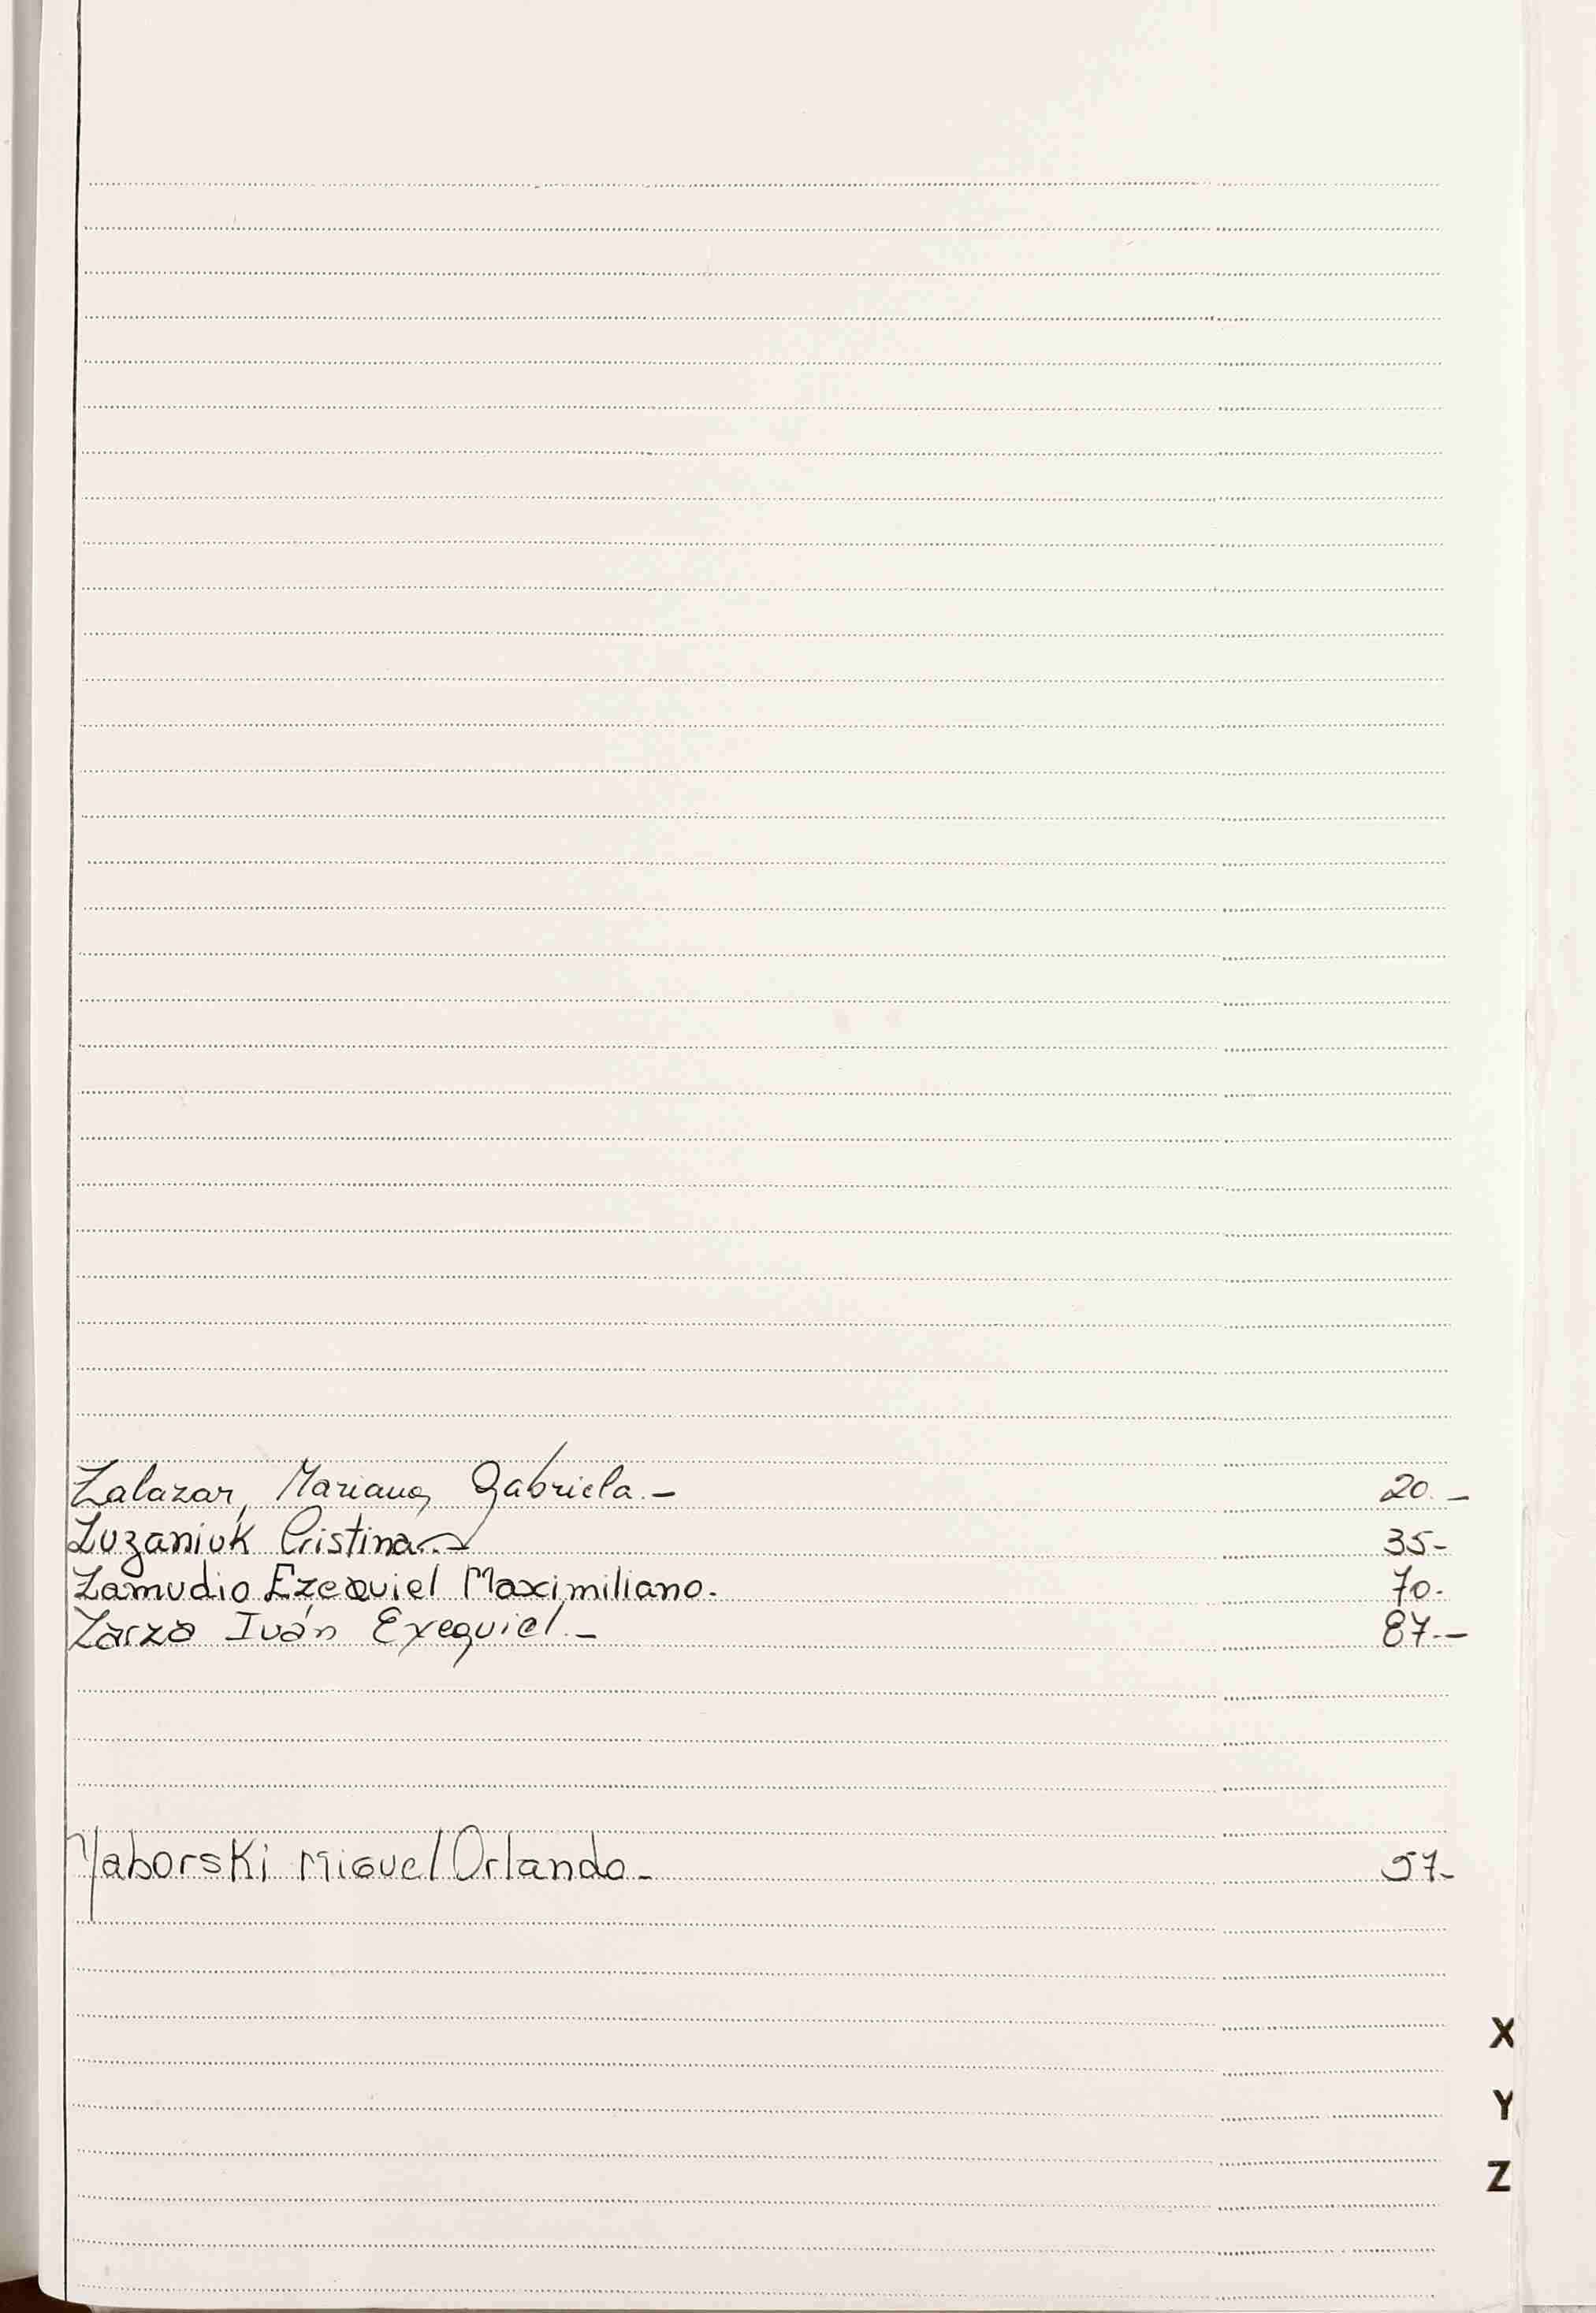 Zalazar, Mariana Gabriela.- 20.-
Luzaniuk Cristina.- 35-
Zamudio Ezequiel Maximiliano. 70.
Zarza Iván Exequiel.- 87.-
Yaborski Miguel Orlando- 57-
X
Y
Z